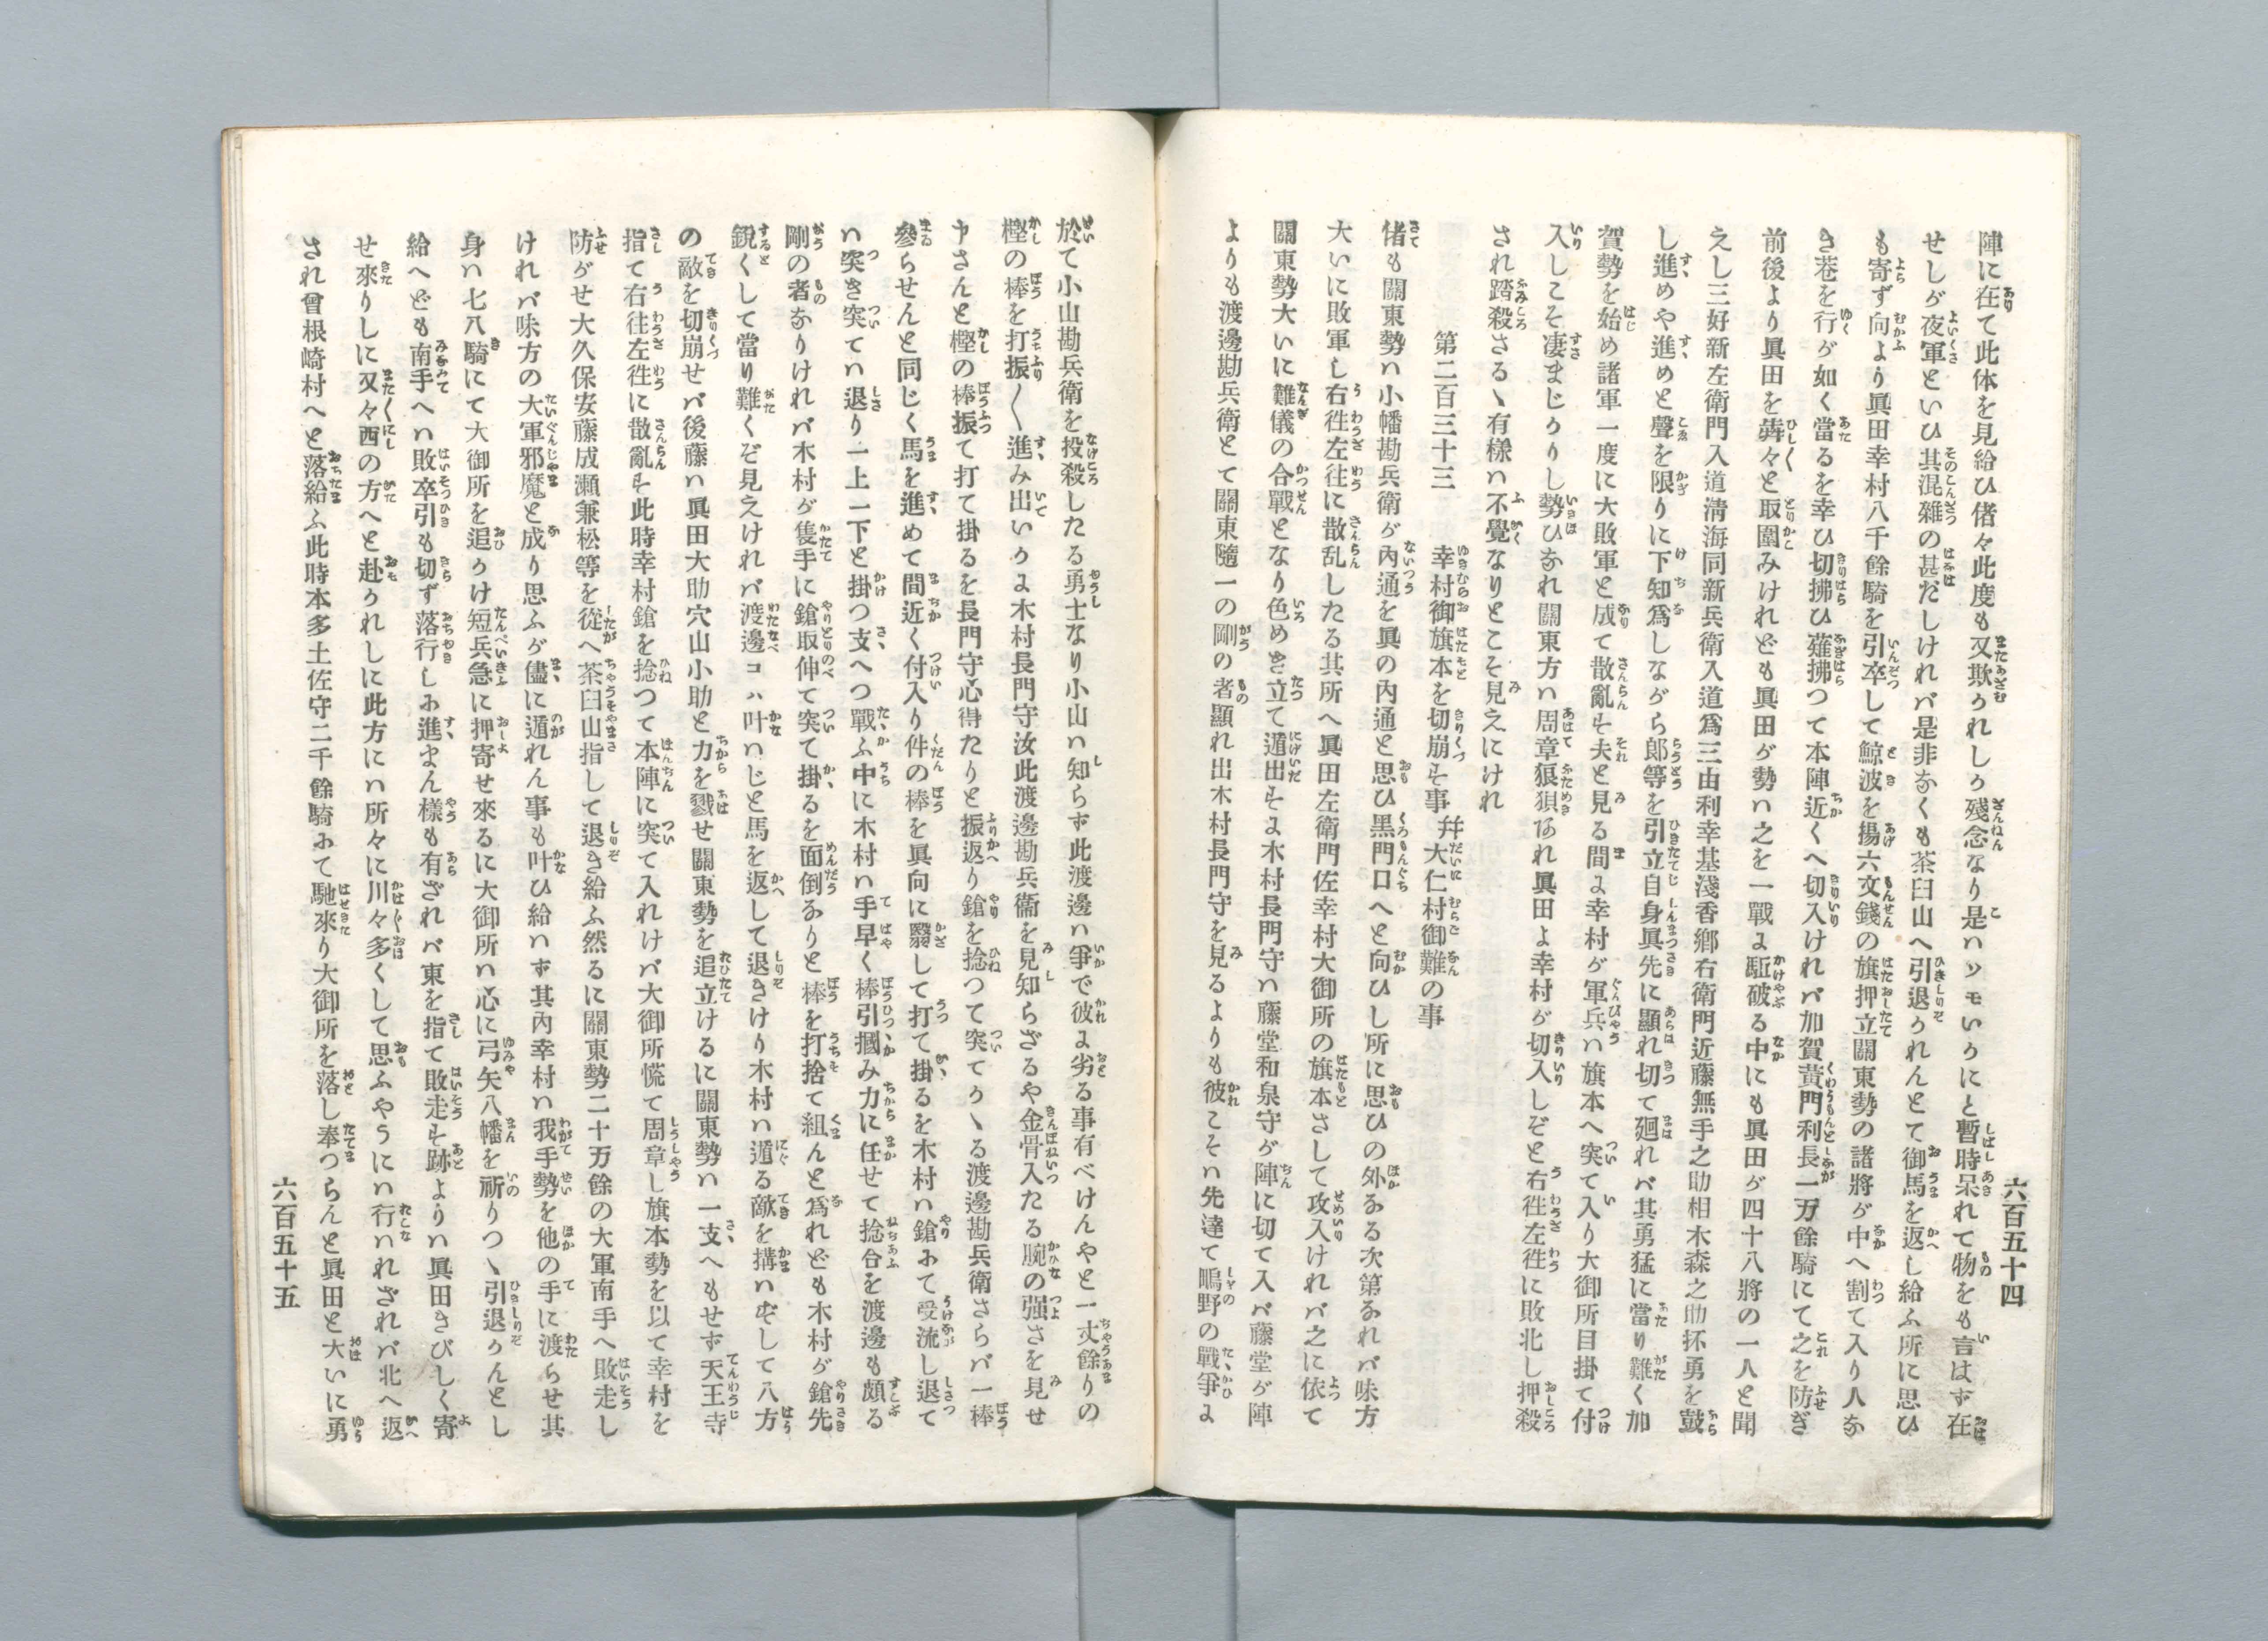 六百五十四
陣に在て此体を見給ひ偖々此度も又欺かれしか殘念なり是ハソモいかにと暫時呆れて物をも言はず在
せしが夜軍といひ其混雜の甚だしけれバ是非なくも茶臼山へ引退かれんとて御馬を返し給ふ所に思ひ
も寄ず向より眞田幸村八千餘騎を引卒して鯨波を揚六文錢の旗押立關東勢の諸將が中へ割て入り人な
き巷を行が如く當るを幸ひ切拂ひ薙拂つて本陣近くへ切入けれバ加賀黃門利長一万餘騎にて之を防ぎ
前後より眞田を犇々と取圍みけれども眞田が勢ハ之を一戰に駈破る中にも眞田が四十八將の一人と聞
えし三好新左衛門入道淸海同新兵衛入道爲三由利幸基淺香鄕右衛門近藤無手之助相木森之助抔勇を皷
し進めや進めと聲を限りに下知爲しながら郎等を引立自身眞先に顯れ切て廻れバ其勇猛に當り難く加
賀勢を始め諸軍一度に大敗軍と成て散亂す夫と見る間に幸村が軍兵ハ旗本へ突て入り大御所目掛て付
入しこそ凄まじかりし勢ひなれ關東方ハ周章狼狽あれ眞田よ幸村が切入しぞと右徃左徃に敗北し押殺
され踏殺さるゝ有樣ハ不覺なりとこそ見えにけれ
第二百三十三　幸村御旗本を切崩す事幷大仁村御難の事
偖も關東勢ハ小幡勘兵衛が內通を眞の內通と思ひ黑門口へと向ひし所に思ひの外なる次第なれバ味方
大いに敗軍し右徃左徃に散乱したる其所へ眞田左衛門佐幸村大御所の旗本さして攻入けれバ之に依て
關東勢大いに難儀の合戰となり色めき立て逃出すに木村長門守ハ藤堂和泉守が陣に切て入バ藤堂が陣
よりも渡邊勘兵衛とて關東隨一の剛の者顯れ出木村長門守を見るよりも彼こそハ先達て鴫野の戰爭に
於て小山勘兵衛を投殺したる勇士なり小山ハ知らず此渡邊ハ爭で彼に劣る事有べけんやと一丈餘りの
樫の棒を打振〱進み出いかに木村長門守汝此渡邊勘兵衞を見知らざるや金骨入たる腕の强さを見せ
申さんと樫の棒振て打て掛るを長門守心得たりと振返り鎗を捻つて突てかゝる渡邊勘兵衛さらバ一棒
參らせんと同じく馬を進めて間近く付入り件の棒を眞向に翳して打て掛るを木村ハ鎗にて受流し退て
ハ突き突てハ退り一上一下と掛つ支へつ戰ふ中に木村ハ手早く棒引摑み力に任せて捻合を渡邊も頗る
剛の者なりけれバ木村が隻手に鎗取伸て突て掛るを面倒なりと棒を打捨て組んと爲れども木村が鎗先
銳くして當り難くぞ見えけれバ渡邊コハ叶ハじと馬を返して退きけり木村ハ遁る敵を搆ハずして八方
の敵を切崩せバ後藤ハ眞田大助穴山小助と力を戮せ關東勢を追立けるに關東勢ハ一支へもせず天王寺
指て右往左徃に散亂す此時幸村鎗を捻つて本陣に突て入れけバ大御所慌て周章し旗本勢を以て幸村を
防がせ大久保安藤成瀨兼松等を從へ茶臼山指して退き給ふ然るに關東勢二十万餘の大軍南手へ敗走し
けれバ味方の大軍邪魔と成り思ふが儘に遁れん事も叶ひ給ハず其內幸村ハ我手勢を他の手に渡らせ其
身ハ七八騎にて大御所を追かけ短兵急に押寄せ來るに大御所ハ心に弓矢八幡を祈りつゝ引退かんとし
給へども南手へハ敗卒引も切ず落行しに進まん樣も有ざれバ東を指て敗走す跡よりハ眞田きびしく寄
せ來りしに又々西の方へと赴かれしに此方にハ所々に川々多くして思ふやうにハ行ハれざれバ北へ返
され曾根崎村へと落給ふ此時本多土佐守二千餘騎にて馳來り大御所を落し奉つらんと眞田と大いに勇
六百五十五